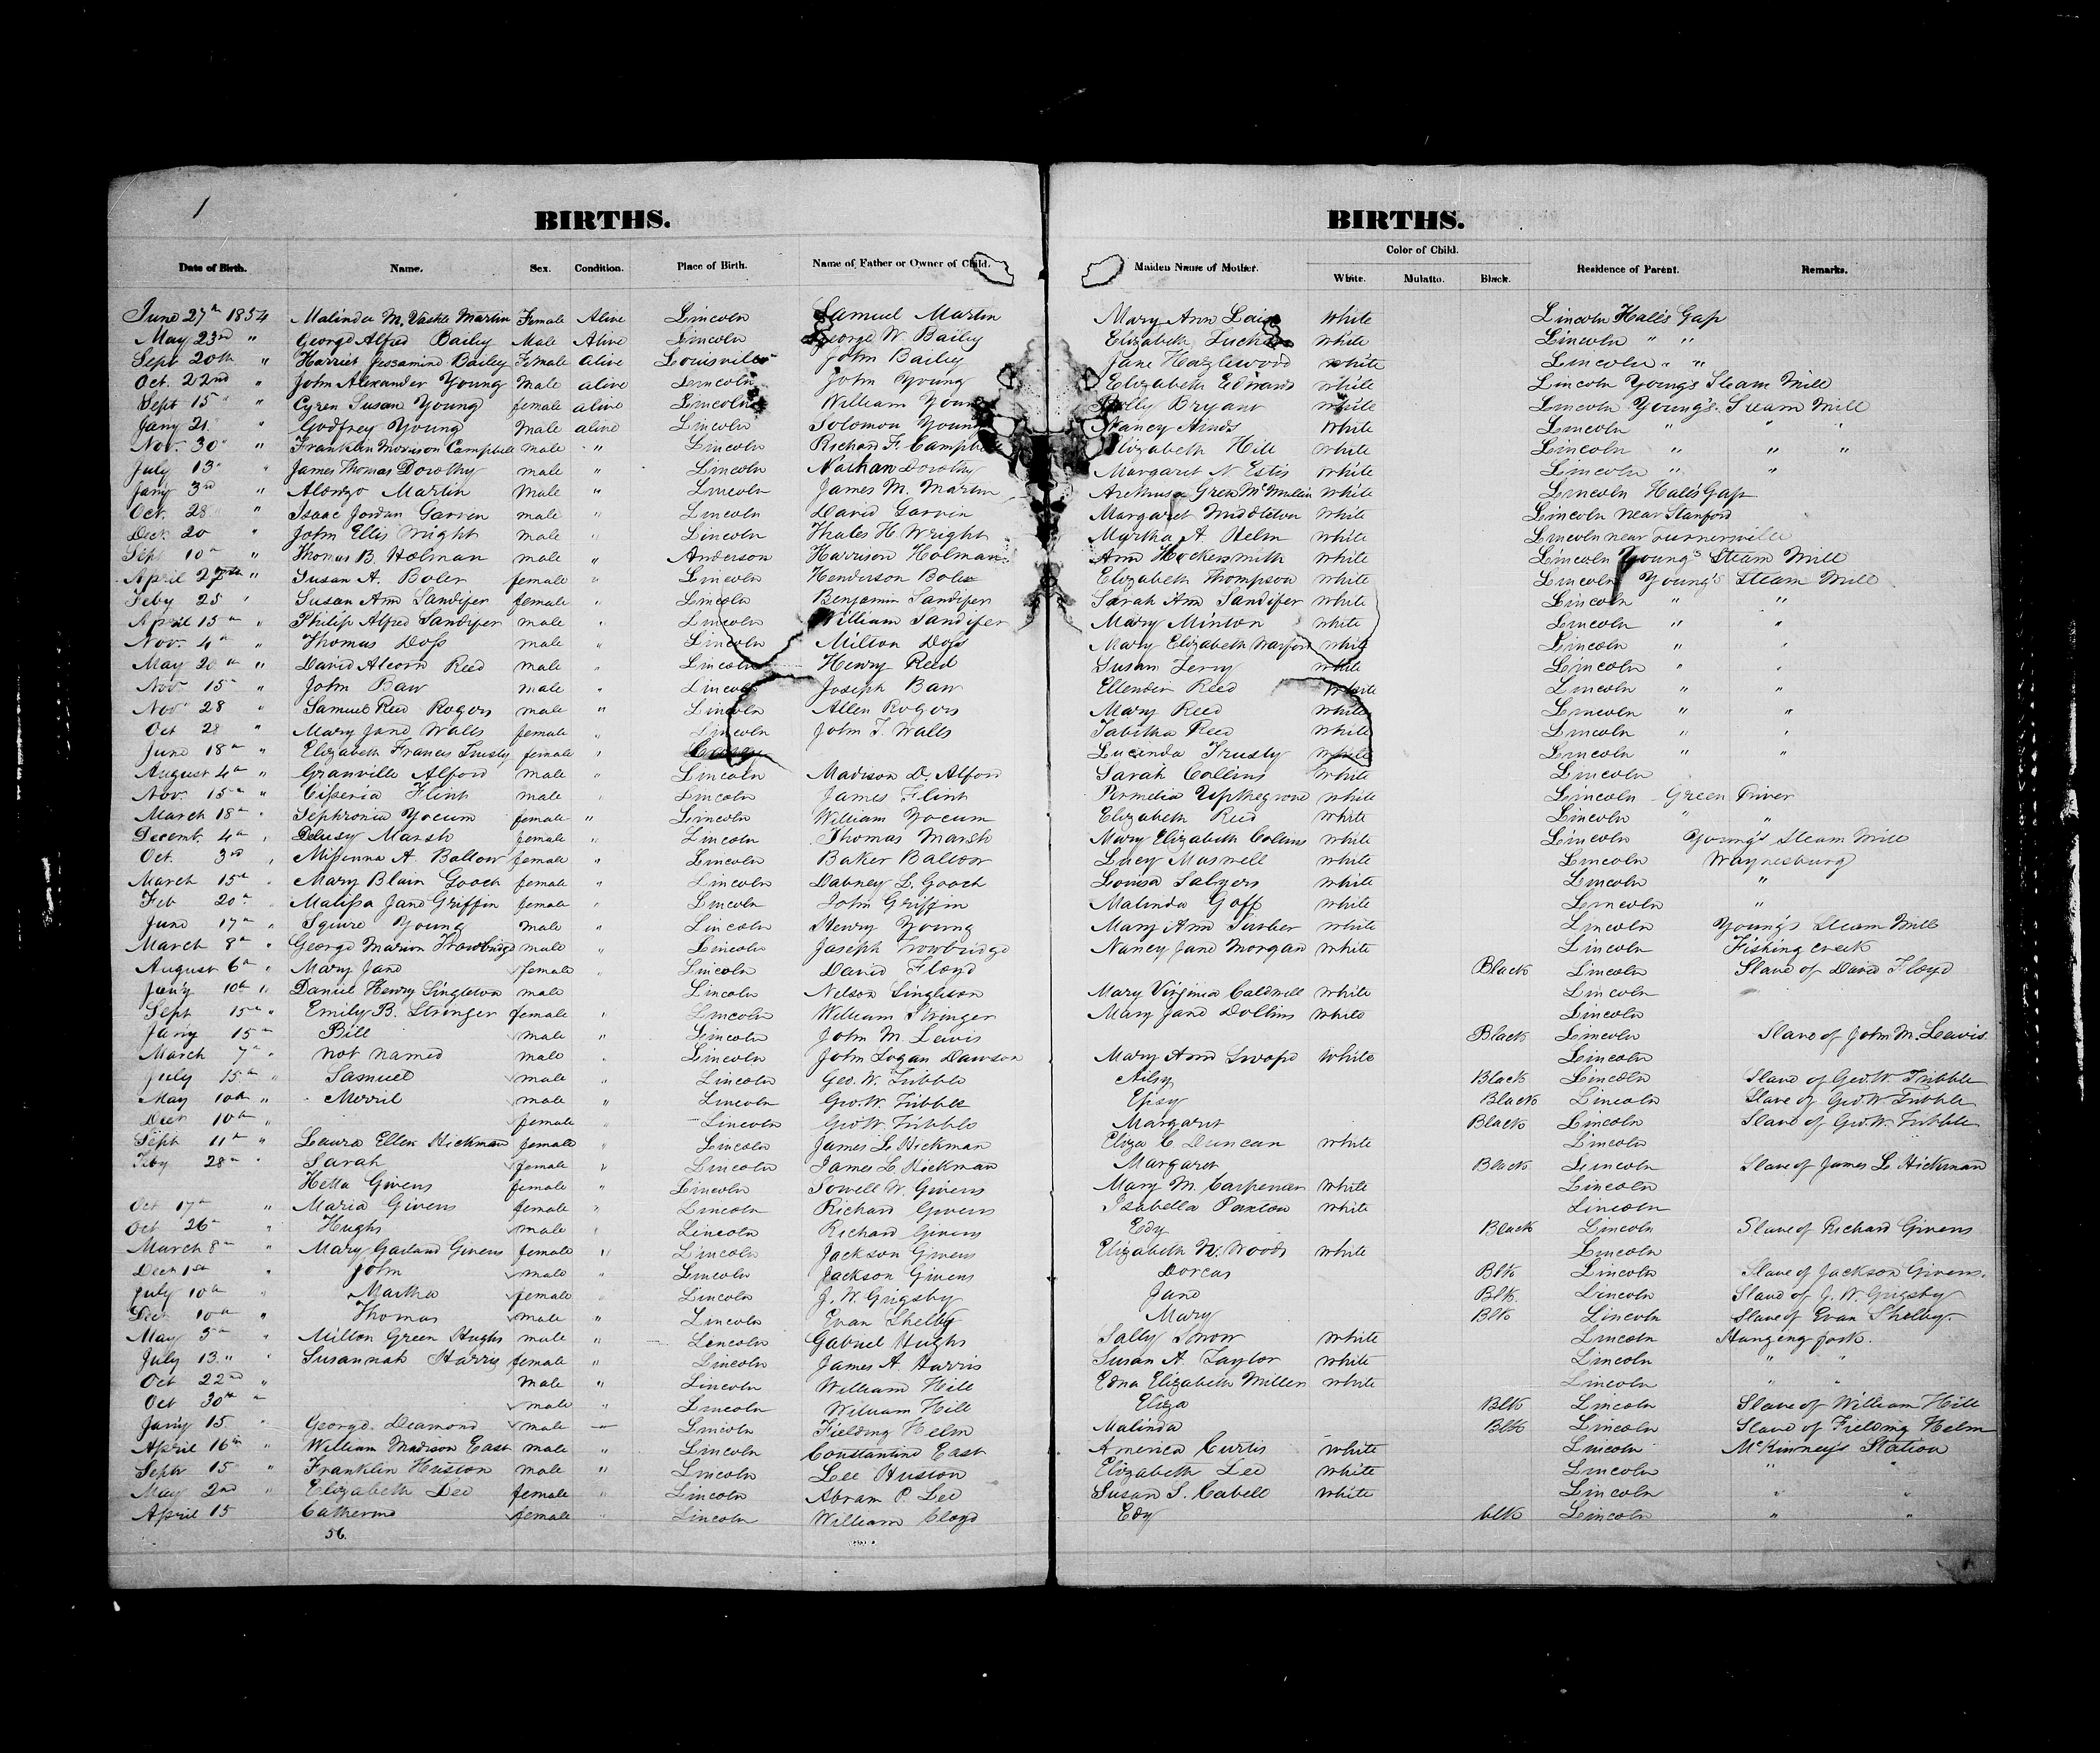 1
BIRTHS. BIRTHS.
Color of Child.
Date of Birth. Name. Sex. Condition. Place of Birth. Name of Father or Owner of Child. Maiden Name of Mother. White. Mulatto. Black. Residence of Parent. Remarks.
June 27th 1854 Malinda M. Martin Female Alive Lincoln Samuel Martin Mary Ann White Lincoln Hall's Gap
May 23rd " George Alfred Bailey Male Alive Lincoln George W. Bailey Elizabeth white Lincoln " "
Sept 20th " Harriet Bailey Female alive Louisville John Bailey Jane Hazlewood white Lincoln " "
Oct. 22nd " John Alexander Young Male alive Lincoln John Young Elizabeth Edwards white Lincoln Young's Steam Mill
Sept 15 " Cyren Susan Young female alive Lincoln William Young Polly Bryant white Lincoln Young's Steam Mill
Jany 21 " Godfrey Young Male alive Lincoln Solomon Young Nancy White Lincoln " " "
Nov. 30 " Franklin Morrison Campbell male " Lincoln Richard F. Campbell Elizabeth Hill white Lincoln " " "
July 13 " James Thomas Dorothy male " Lincoln Nathan Dorothy Margaret N Estis white Lincoln " "
Jany 3rd " Alonzo Martin Male " Lincoln James M. Martin Arethusa Green McMullin white Lincoln Hall's Gap
Oct. 28 Isaac Jordan Garven male " Lincoln David Garvin Margaret Middleton white Lincoln near Stanford
Dec 20 " John Ellis Wright male " Lincoln Thales H. Wright Myrtha A. Helm white Lincoln near Turnersville
Sept 10th " Thomas B. Holman male " Anderson Harrison Holman Ann Hockersmith white Lincoln Young's Steam Mill
April 27th " Susan A. Boler female " Lincoln Henderson Boler Elizabeth Thompson white Lincoln Young's Steam Mill
Feby 25 " Susan Ann Sandifer female " Lincoln Benjamin Sandifer Sarah Ann Sandifer white Lincoln " "
April 15th " Philip Alfred Sandifer male " Lincoln William Sandifer Mary Minton white Lincoln " "
Nov. 4th " Thomas Doss male " Lincoln Milton Doss Mary Elizabeth white Lincoln " "
May 20th " David Alcorn Reed male " Lincoln Henry Reed Susan Terry white Lincoln " "
Nov 15th " John Baw male " Lincoln Joseph Baw Ellender Reed White Lincoln " "
Nov 28 " Samuel Reed Rogers male " Lincoln Allen Rogers Mary Reed white Lincoln " "
Oct 28 " Mary Jane Walls female " Lincoln John T. Walls Tabitha Reed white Lincoln " "
June 18th " Elizabeth Frances Trusty female " Casey Lucinda Trusty white Lincoln " "
August 4th " Granville Alford male " Lincoln Madison D. Alford Sarah Collins white Lincoln
Nov. 15th " Flint male " Lincoln James Flint Permelia white Lincoln Green River
March 18th " Sephronia Yocum female " Lincoln William Yocum Elizabeth Reed white Lincoln " "
Decemb. 4th " Marsh female " Lincoln Thomas Marsh Mary Elizabeth Collins white Lincoln Young's Steam Mill
Oct. 3rd " Missenna A. Ballow female " Lincoln Baker Ballow Lucy Maswell white Lincoln Waynesburg
March 15th " Mary Blain Gooch female " Lincoln Dabney L. Gooch Louisa Salyers white Lincoln "
Feb 20th Malissa Jane Griffin female " Lincoln John Griffin Malinda Goff white Lincoln "
June 17th " Squire Young Male " Lincoln Henry Young Mary Ann white Lincoln Young's Steam Mill
March 8th " George Marion Trowbridge male " Lincoln Joseph Trowbridge Nancy Jane Morgan white Lincoln Fishing creek
August 6th " Mary Jane female " Lincoln David Floyd Black Lincoln Slave of David Floyd
Jan'y 10th " Daniel Henry Singleton male Lincoln Nelson Singleton Mary Virginia Caldwell white Lincoln
Sept 15th " Emily B. Stringer female " Lincoln William Stringer Mary Jane Dollins white Lincoln
Jan'y 15th Bill male " Lincoln John M. Lewis Black Lincoln Slave of John M. Lewis
March 7th " not named male " Lincoln John Logan Dawson Mary Ann Swope White Lincoln
July 15th " Samuel male " Lincoln Geo. W. Tribble Ailsy Black Lincoln Slave of Geo. W. Tribble
May 10th " Merril male " Lincoln Geo. W. Tribble Black Lincoln Slave of Geo. W. Tribble
Decr 10th " female " Lincoln Geo W. Tribble Margaret Black Lincoln Slave of Geo. W. Tribble
Sept 11th " Laura Ellen Hickman female " Lincoln James L. Hickman Eliza C Duncan white Lincoln
Feby 28th " Sarah female " Lincoln James L. Hickman Margaret Black Lincoln Slave of James L Hickman
Hetta Givens female " Lincoln Sowell W. Givens Mary M. Carpenter white Lincoln
Oct 17th " Maria Givens female " Lincoln Richard Givens Isabella Paxton white Lincoln
Oct 26th " Hughs male " Lincoln Richard Givens Edy Black Lincoln Slave of Richard Givens
March 8th " Mary Garland Givens female " Lincoln Jackson Givens Elizabeth W. Woods white Lincoln
Decr 1st " John male " Lincoln Jackson Givens Dorcas Blk Lincoln Slave of Jackson Givens.
July 10th " Martha female " Lincoln J. W. Grigsby Jane Blk Lincoln Slave of J. W. Grigsby
Decr 10th " Thomas male " Lincoln Evan Shelby Mary Blk Lincoln Slave of Evan Shelby.
May 5th " Milton Green Hughs male " Lincoln Gabriel Hughs Sally Snow white Lincoln Hanging fork.
July 13 " " Susannah Harris female " Lincoln James A. Harris Susan A. Taylor white Lincoln " "
Oct 22nd " Male " Lincoln William Hill Edna Elizabeth Miller white Lincoln " "
Oct 30th " male " Lincoln William Hill Eliza Blk Lincoln Slave of William Hill
Jan'y 15 " George Deamond male — Lincoln Fielding Helm Malinda Blk Lincoln Slave of Fielding Helm
April 16th " William Madison East male " Lincoln Constantine East America Curtis white Lincoln McKinney's Station
Sept 15 " Franklin Huston male " Lincoln Lee Huston Elizabeth Lee white Lincoln " "
May 2nd " Elizabeth Lee female " Lincoln Abram C. Lee Susan S. Cabell white Lincoln " "
April 15 Catherine female " Lincoln William Cloyd Edy blk Lincoln " "
56.